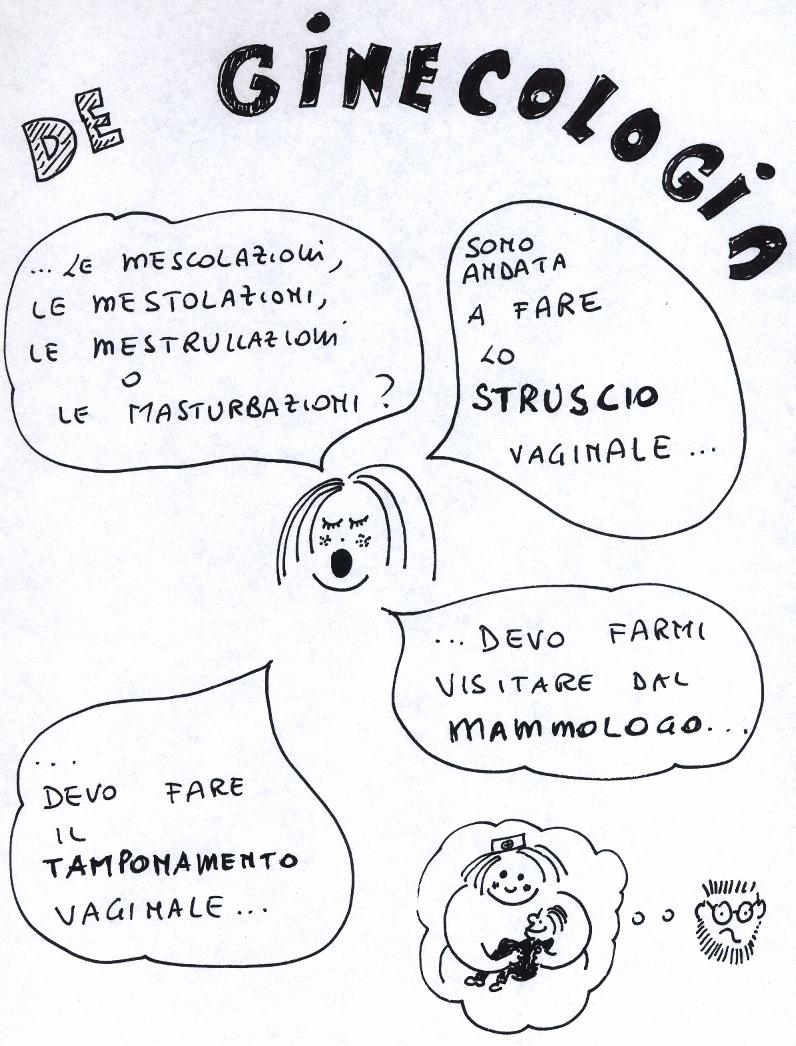 DE GINECOLOGIA
...LE MESCOLAZIONI,
LE MESTOLAZIONI,
LE MESTRULLAZIONI
O
LE MASTURBAZIONI?
SONO
ANDATA
A FARE
LO
STRUSCIO
VAGINALE...
...DEVO FARMI
VISITARE DAL
MAMMOLOGO...
...
DEVO FARE
IL
TAMPONAMENTO
VAGINALE...